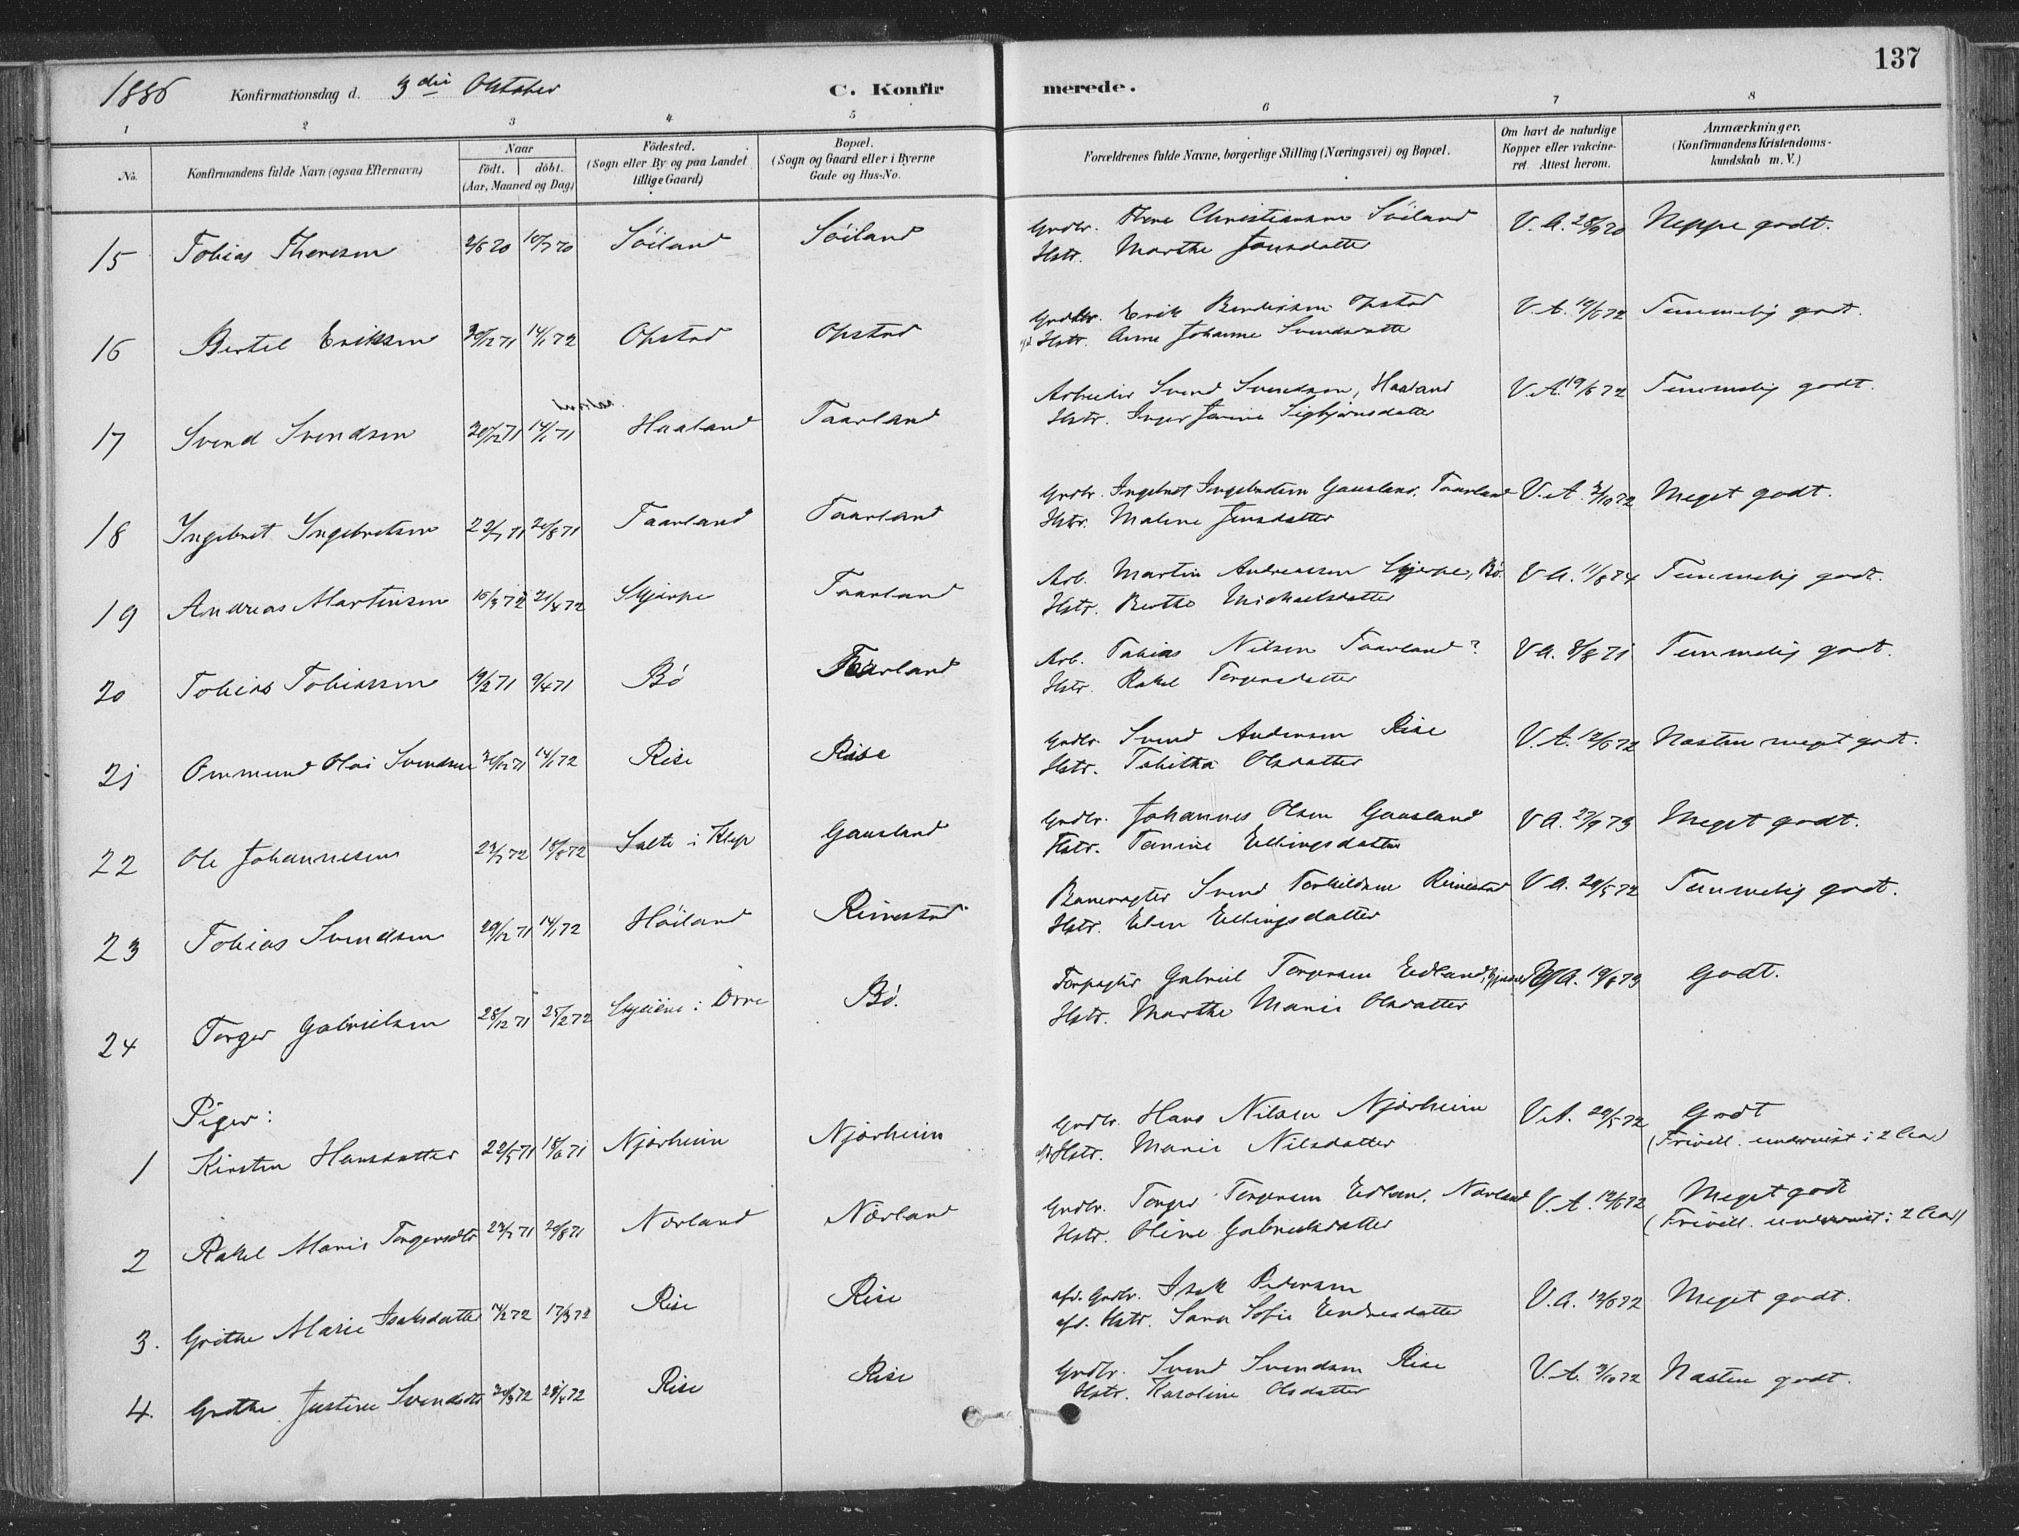 137
1886 Konfirmationsdag d. 3die Oktober C. Konfirmerede.
1 2 3 4 5 6 7 8
No. Konfirmandens fulde Navn (ogsaa Efternavn) Naar födt. döbt. (Aar, Maaned og Dag) Födested. (Sogn eller By og paa Landet tillige Gaard) Bopæl. (Sogn og Gaard eller i Byerne Gade og Hus-No. Forældrenes fulde Navne, borgerlige Stilling (Næringsvei) og Bopæl. Om havt de naturlige Kopper eller vakcineret. Attest herom. Anmærkninger. (Konfirmandens Kristendomskundskab m. V.)
15 Tobias Theresen 10/7 70 Söiland Söiland Grdbr. Christiansen Söiland V. A. 28/9 70 Neppe godt.
Hstr. Marthe Jonsdatter
16 Bertel Eriksen 30/12 71 14/1 72 Opstad Opstad Grdbr. Erik Bendiksen Opstad V. A. 19/6 72 Temmelig godt.
Hstr. Anne Johanne Svendsdatter
17 Svend Svendsen 14/1 71 Haaland Taarland Arbeider Svend Svendsen, Haaland V. A. 19/6 72 Temmelig godt.
Hstr. Inger Sigbjörnsdatter
18 Ingebret Ingebretsen 20/8 71 Taarland Taarland Grdbr. Ingebret Ingebretsen Gausland, Taarland V. A. 72 Meget godt.
Hstr. Malene Jensdatter
19 Andreas Martinsen 15/3 72 21/4 72 Skjærpe Taarland Arb. Martin Andreassen Bö. V A. 11/8 74 Temmelig godt.
Hstr. Berthe Michaelsdatter
20 Tobias Tobiassen 19/2 71 9/4 71 Bö Taarland Arb. Tobias Nilsen Taarland? V A. 71 Temmelig godt.
Hstr. Rakel Torgersdatter
21 Ommund Olai Svendsen 14/1 72 Rise Rise Grdbr. Svend Andersen Rise V. A. 19/6 72 Næsten meget godt.
Hstr. Tabitha Olsdatter
22 Ole Johannesen 23/7 72 18/8 72 Salte i Klep Gausland Grdbr. Johannes Olsen Gausland V A. 27/9 73 Meget godt.
Hstr. Tanine Ellingsdatter
23 Tobias Svendsen 29/12 71 14/1 72 Höiland Rimestad Banevogter Svend Torkildsen Rimestad V A. 29/5 72 Temmelig godt.
Hstr. Elen Ellingsdatter
24 Torger Gabrielsen 28/12 71 25/2 72 Bö. Gabriel Torgersen Edland, V A. 19/8 73 Godt.
Hstr. Marthe Marie Olsdatter
Piger:
1 Kirsten Hansdatter 22/5 71 18/6 71 Njærheim Njærheim Grdbr. Hans Nilsen Njærheim V. A. 29/5 72 Godt
Hstr. Marie Nilsdatter (Frivill. undervist i 2 Aar)
2 Rakel Marie Torgersdtr 23/7 71 20/8 71 Nærland Nærland Grdbr. Torger Torgersen Edland, Nærland V. A. 19/6 72 Meget godt
Hstr. Oline Gabrielsdatter (Frivill. undervist i 2 Aar)
3. Grethe Marie Isaksdatter 17/3 72 Rise Rise afd. Grdbr. Isak Pedersen V. A. 19/6 72 Meget godt.
afd. Hstr. Sara Sofie Endresdatter
4. Grethe Justine Svendsdtr 28/4 72 Rise Rise Grdbr. Svend Svendsen Rise V. A. 72 Næsten godt.
Hstr. Karoline Olsdatter